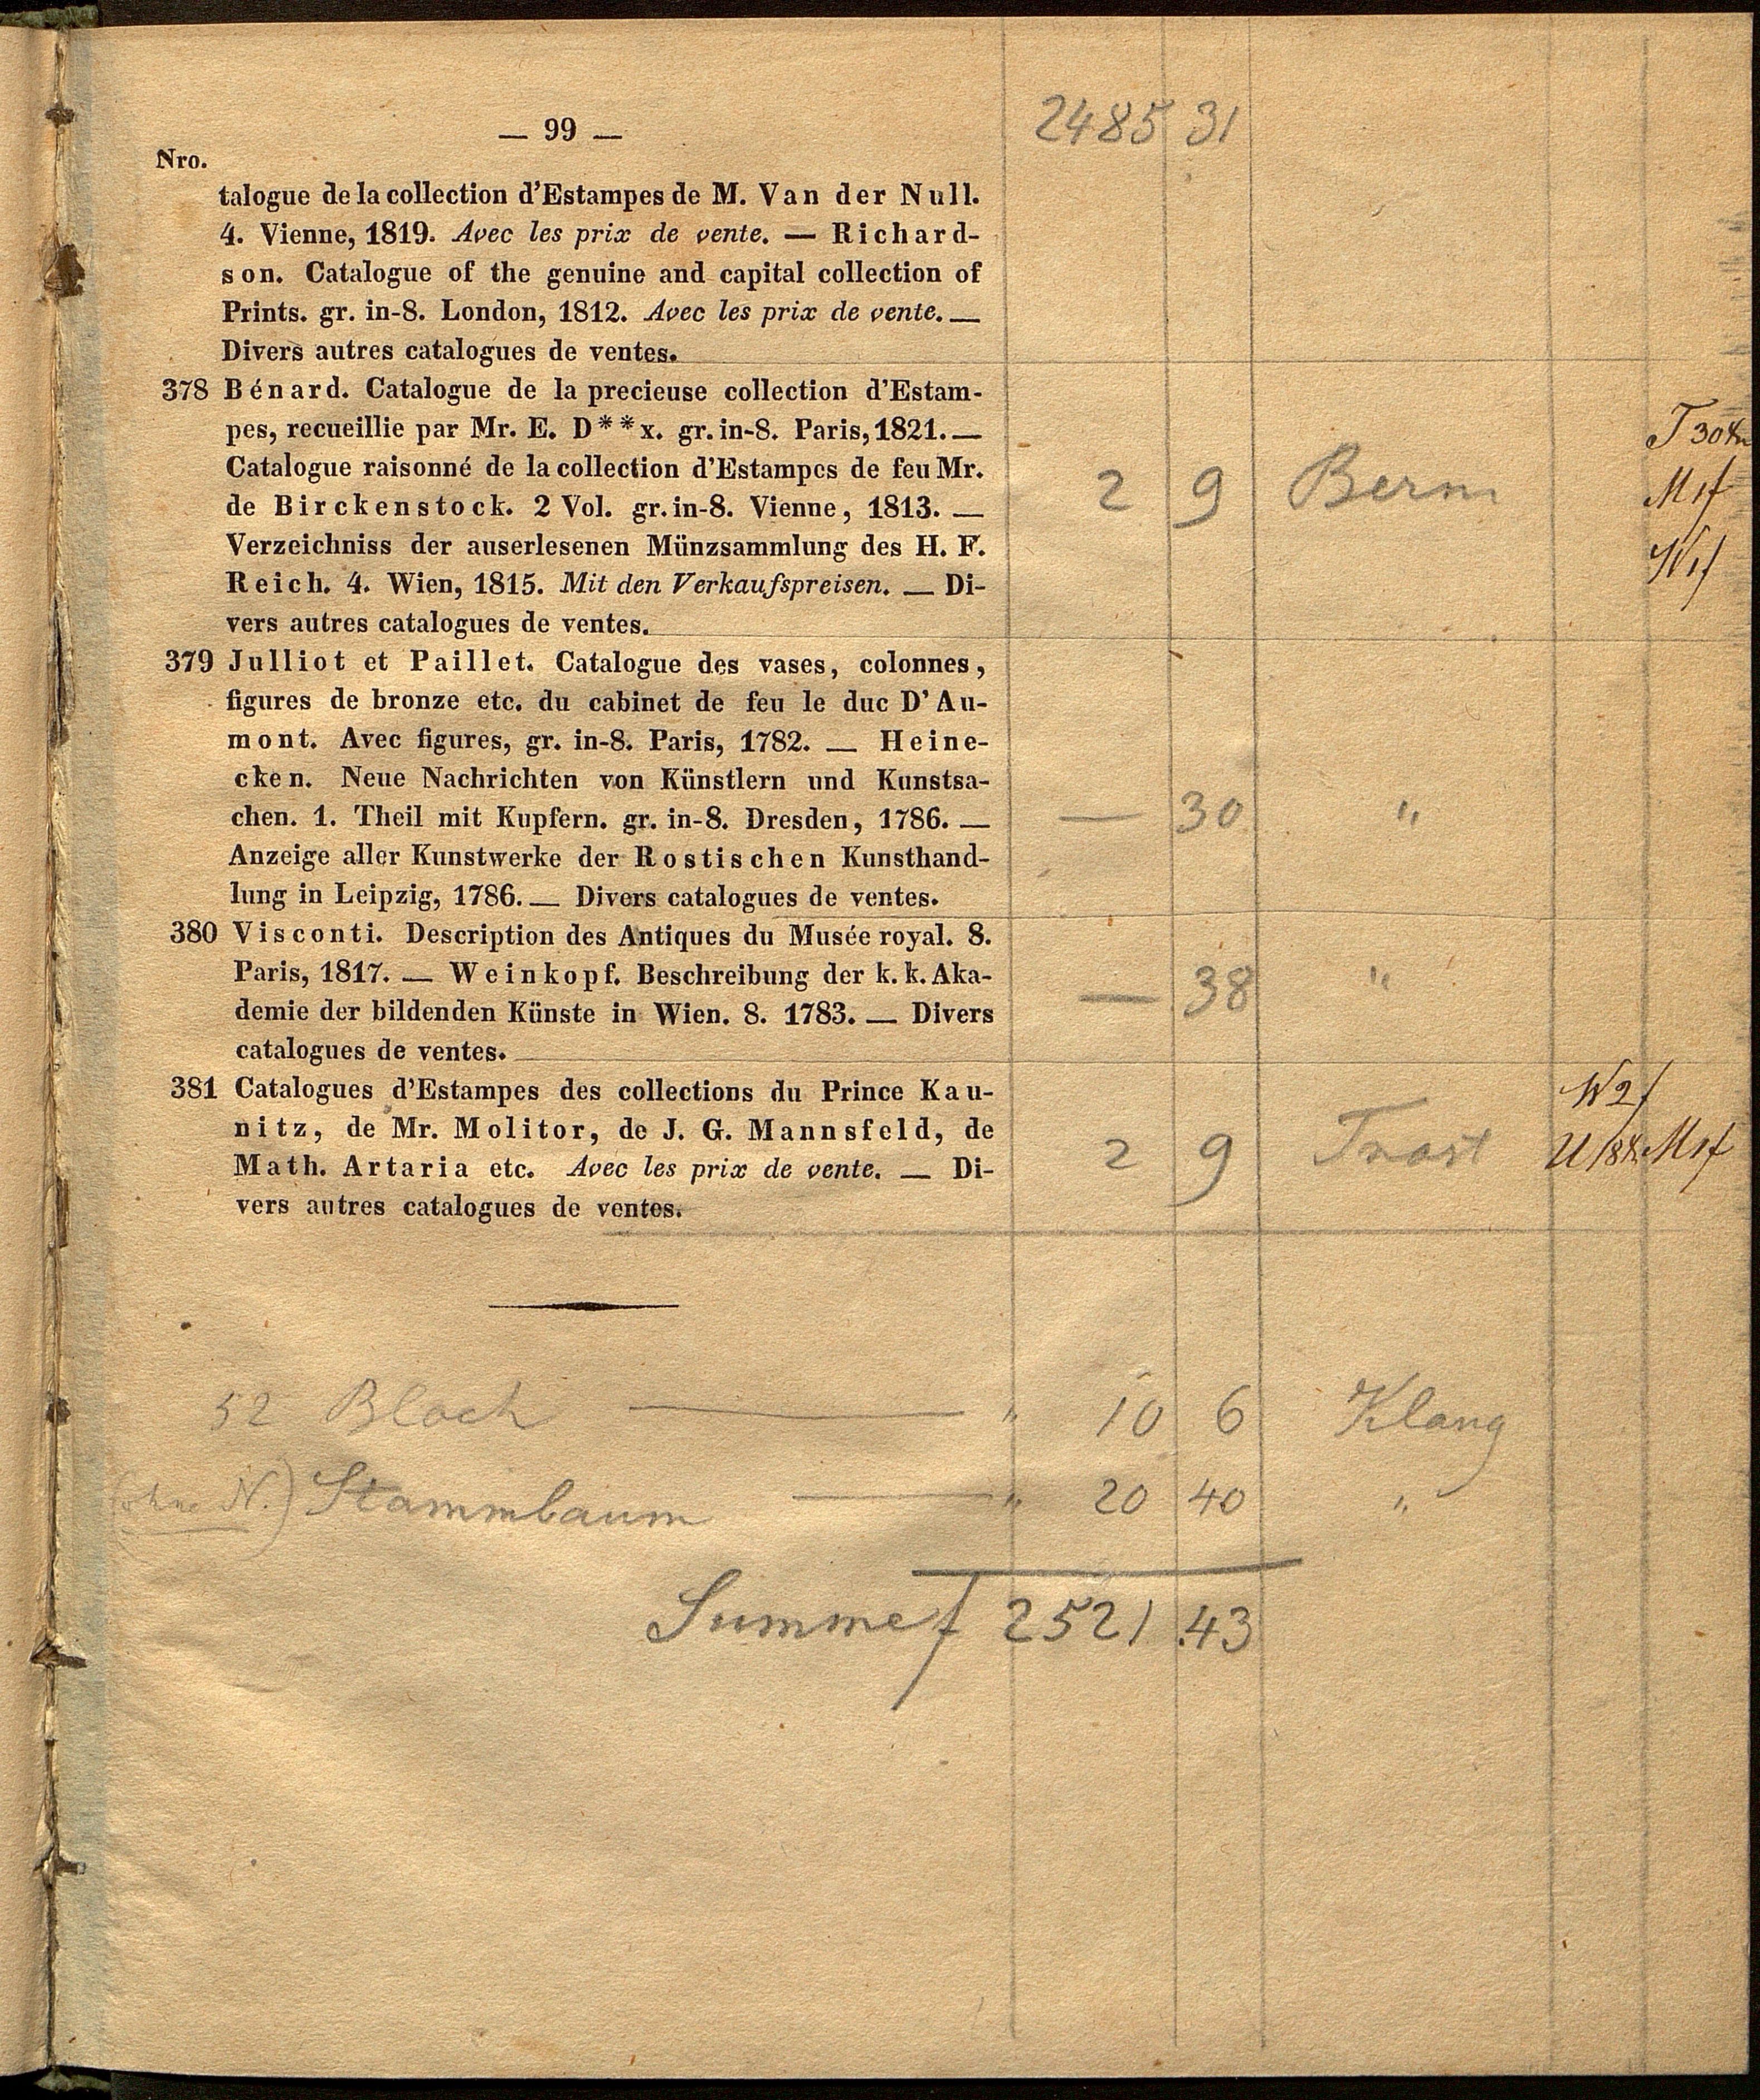 — 99 — 2485 31
Nro.
talogue de la collection d'Estampes de M. Van der Null.
4. Vienne, 1819. Avec les prix de vente. — Richard-
son. Catalogue of the genuine and capital collection of
Prints. gr. in-8. London, 1812. Avec les prix de vente. —
Divers autres catalogues de ventes.
378 Bénard. Catalogue de la precieuse collection d'Estam-
pes, recueillie par Mr. E. D**x. gr. in-8. Paris, 1821. —
Catalogue raisonné de la collection d'Estampes de feu Mr.
de Birckenstock. 2 Vol. gr. in-8. Vienne, 1813. — 2 9 Berm M 1f
Verzeichniss der auserlesenen Münzsammlung des H. F. W 1f
Reich. 4. Wien, 1815. Mit den Verkaufspreisen. — Di-
vers autres catalogues de ventes.
379 Julliot et Paillet. Catalogue des vases, colonnes,
figures de bronze etc. du cabinet de feu le duc D'Au-
mont. Avec figures, gr. in-8. Paris, 1782. — Heine-
cken. Neue Nachrichten von Künstlern und Kunstsa-
chen. 1. Theil mit Kupfern. gr. in-8. Dresden, 1786. — — 30 "
Anzeige aller Kunstwerke der Rostischen Kunsthand-
lung in Leipzig, 1786. — Divers catalogues de ventes.
380 Visconti. Description des Antiques du Musée royal. 8.
Paris, 1817. — Weinkopf. Beschreibung der k. k. Aka- — 38 "
demie der bildenden Künste in Wien. 8. 1783. — Divers
catalogues de ventes.
381 Catalogues d'Estampes des collections du Prince Kau- W 2f
nitz, de Mr. Molitor, de J. G. Mannsfeld, de 2 9 Trast M 1f
Math. Artaria etc. Avec les prix de vente. — Di-
vers autres catalogues de ventes.
52 Bloch — " 10 6 Klang
(ohne N.) Stammbaum — " 20 40 "
Summe f 2521.43